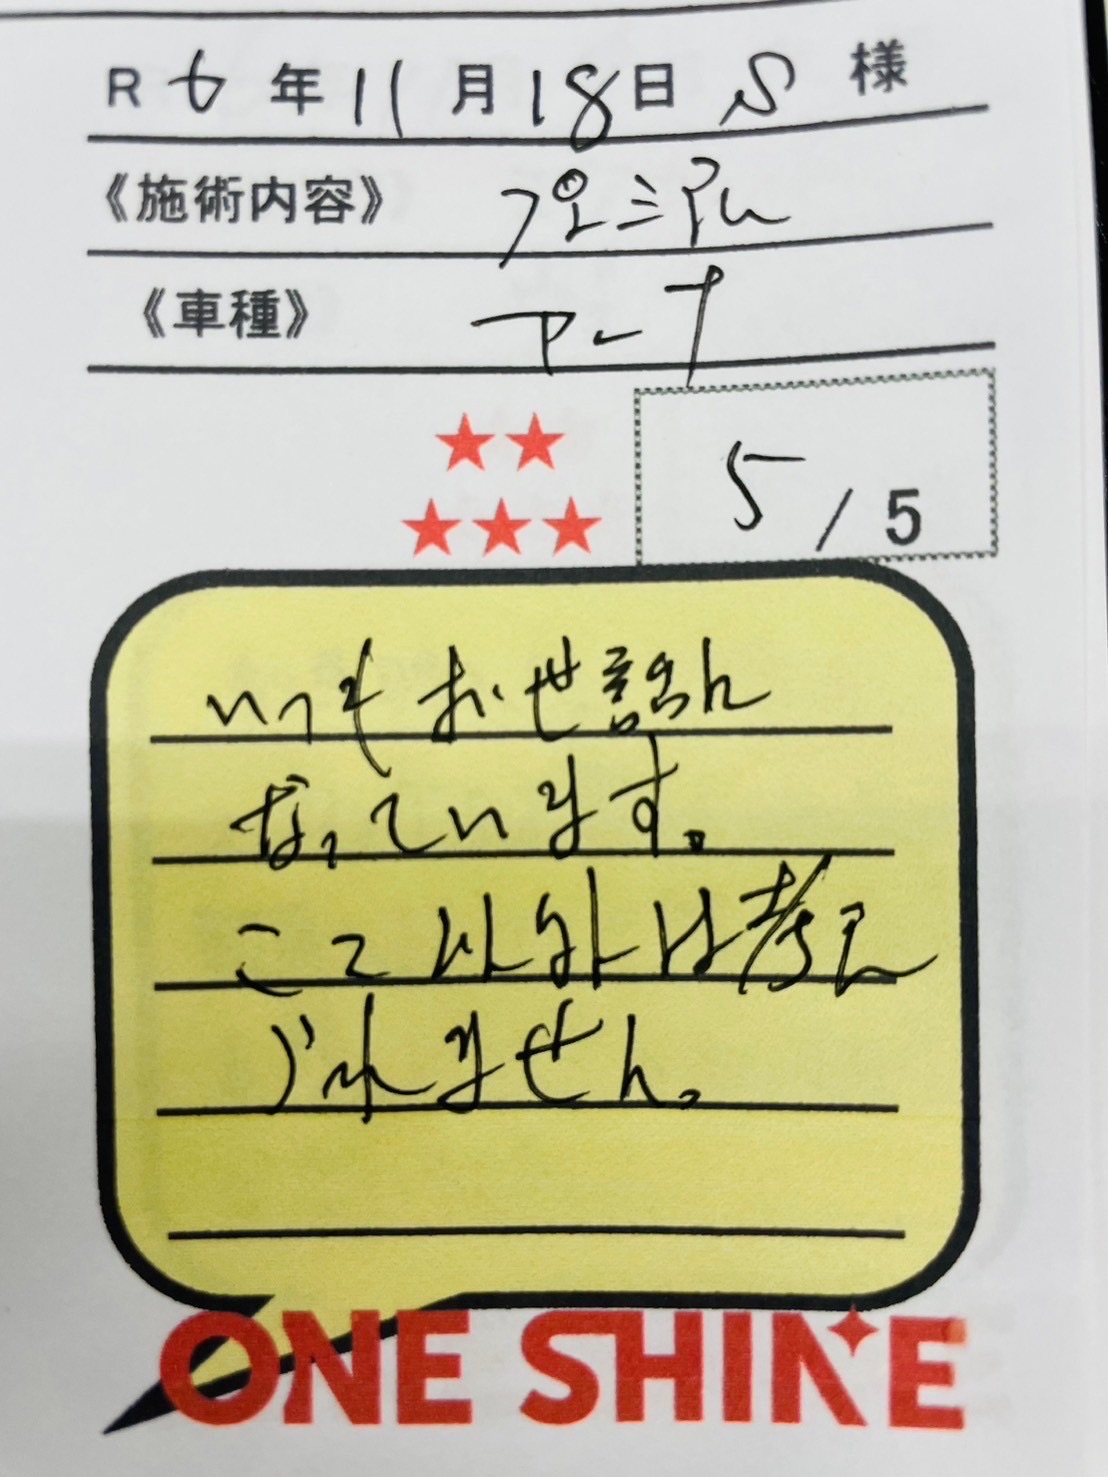 R 6年11月18日 S 様
《施術内容》 プレミアム
《車種》
★★
★★★
5/5
いつもお世話に
なっています。
ここ以外は考え
られません。
ONE SHINE